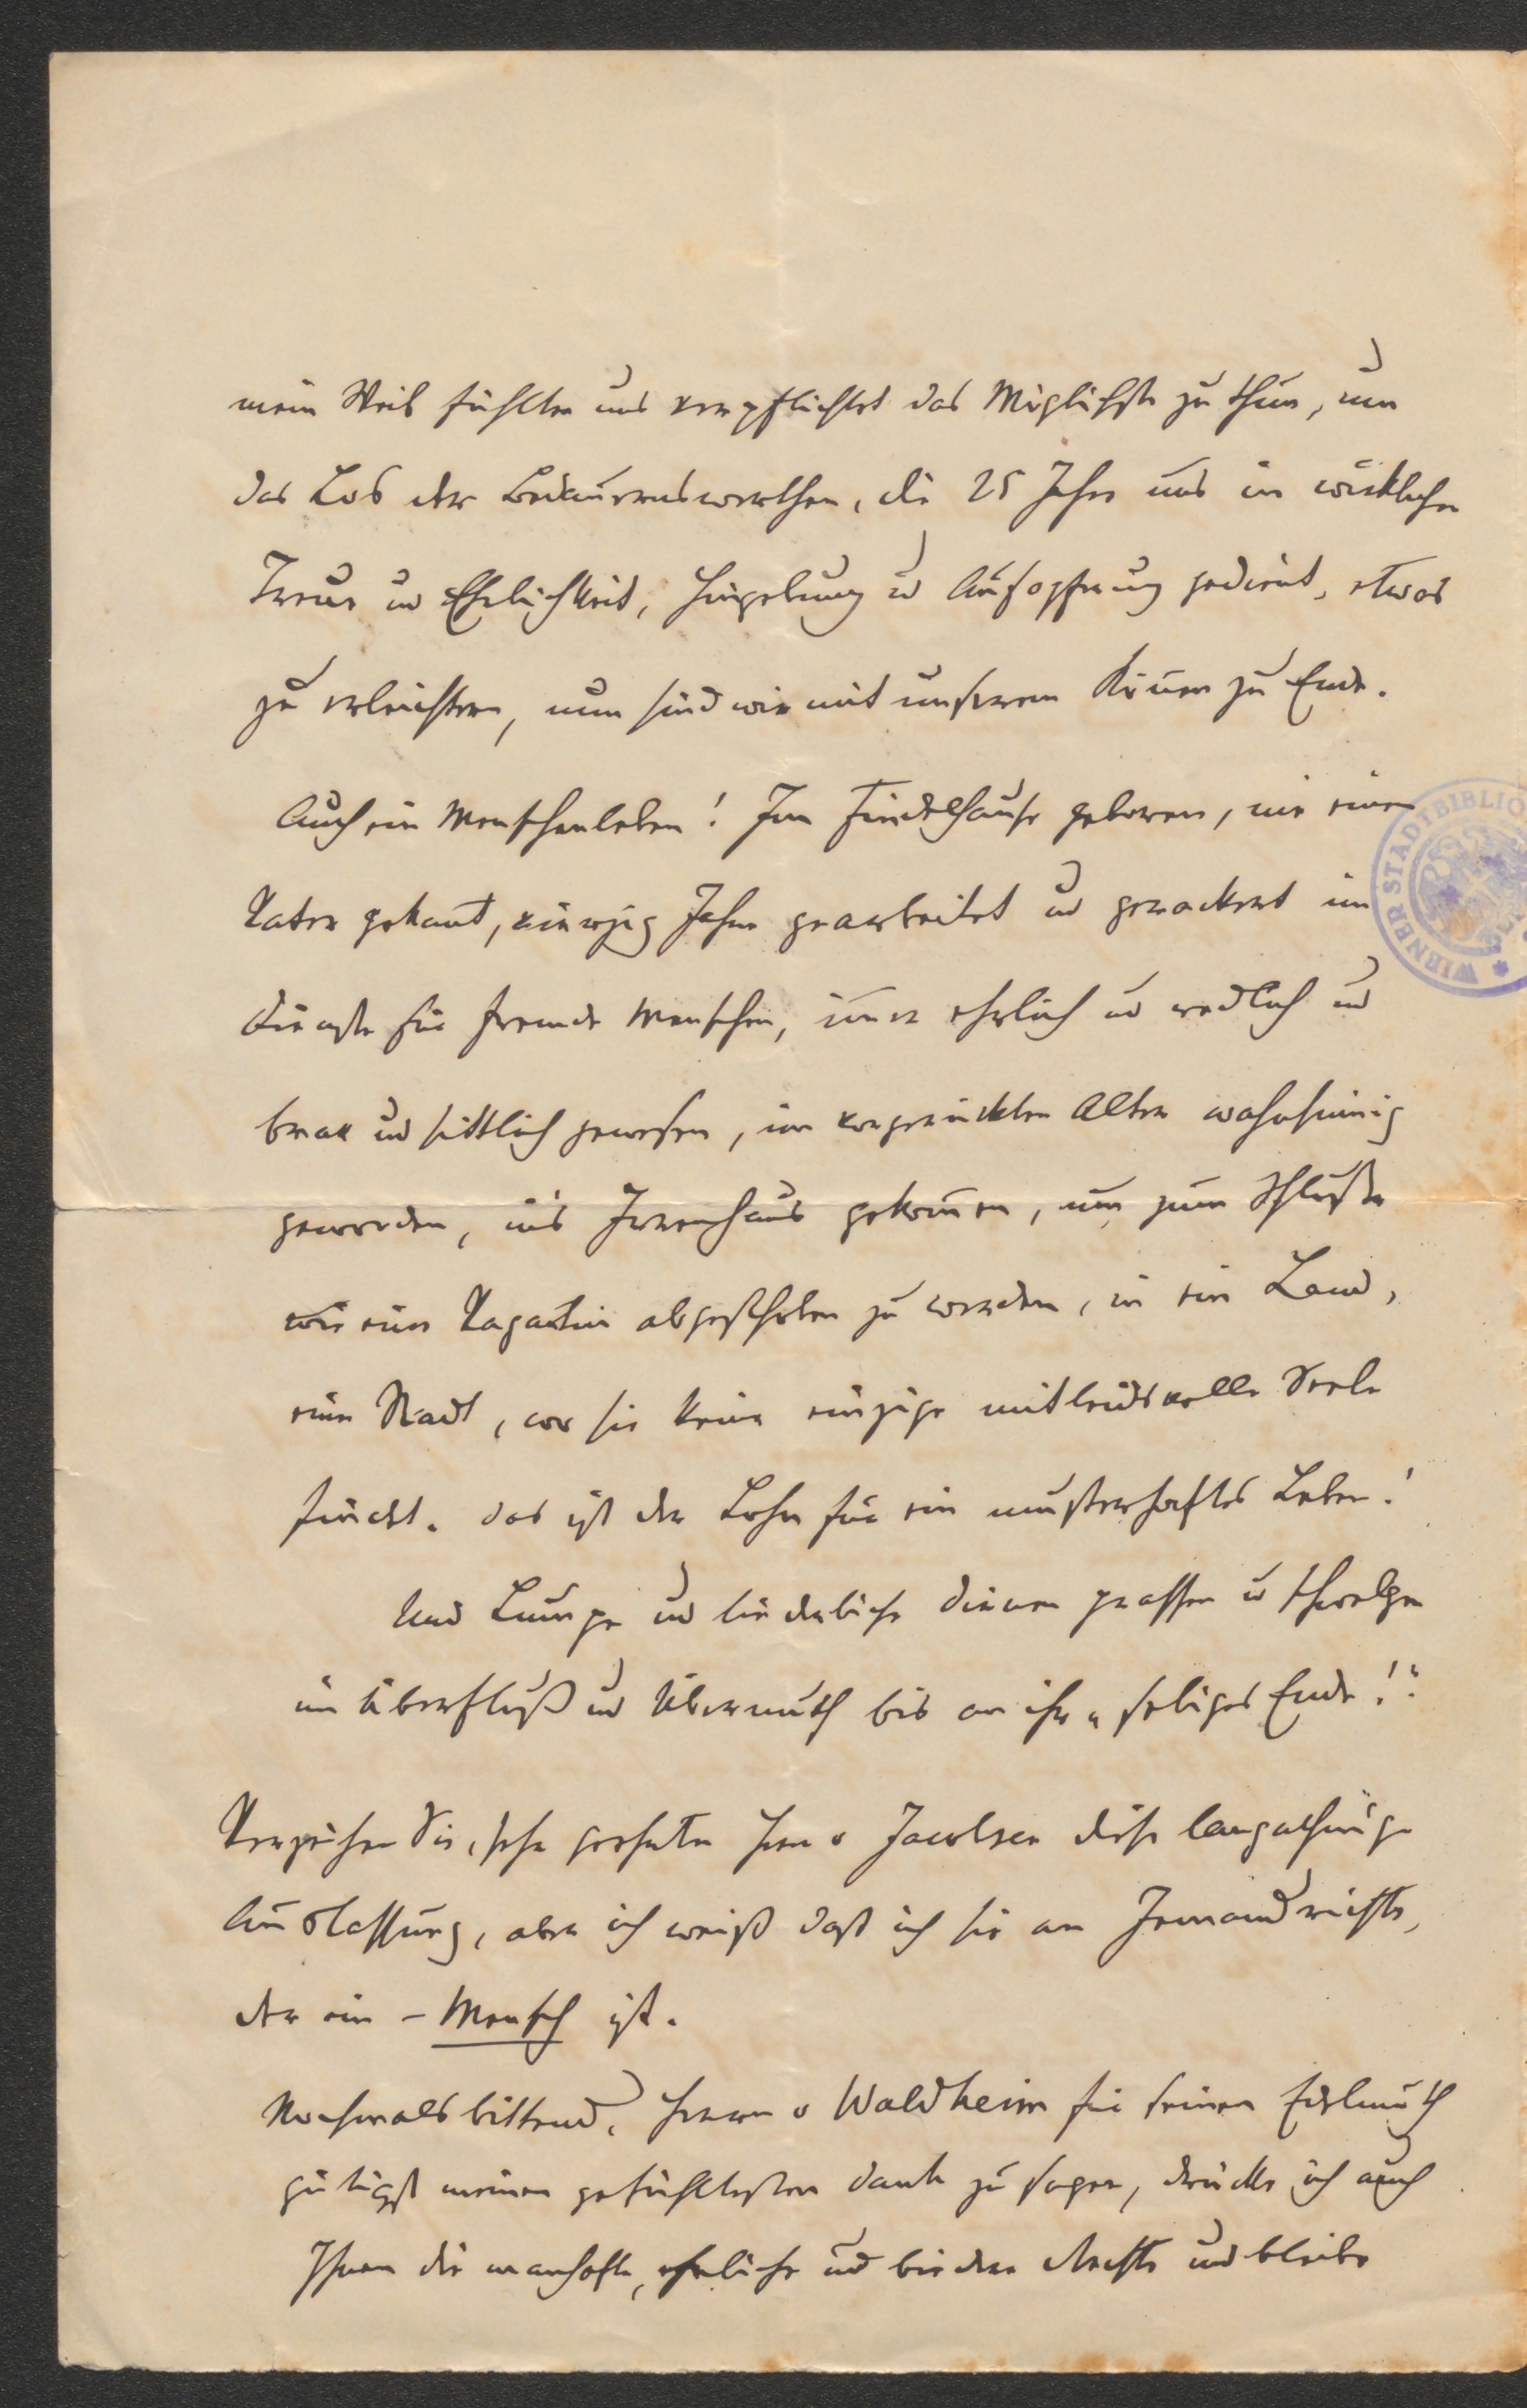 mein Weib fühlten uns verpflichtet das Möglichste zu thun, um
das Los der Bedauernswerthen, die 25 Jahre uns in wirklicher
Treue und Ehrlichkeit, Hingebung u Aufopferung gedient, etwas
zu erleichtern, nun sind wir mit unserem Könen zu Ende.
Auch ein Menschenleben! Im Findelhause geboren, nie einen
Vater gekant, vierzig Jahre gearbeitet und gerackert im
Dienste für fremde Menschen, imer ehrlich und redlich und
brav und sittlich gewesen, im vorgerückten Alter wahnsinnig
geworden, ins Irrenhaus gekomen, um zum Schluße
wie eine Vagantin abgeschoben zu werden, in ein Land,
eine Stadt, wo sie keine einzige mitleidsvolle Seele
findet. Das ist der Lohn für ein musterhaftes Leben!
Und Lumpe und liederliche Dirnen prassen u schwelgen
im Überfluß und Übermuth bis an ihr „seliges Ende!“
Verzeihen Sie, sehr geehrter Herr v Jacobsen diese langathmige
Auslassung, aber ich weiß daß ich sie an Jemand richte,
der ein – Mensch ist.
Nochmals bittend, Herrn v Waldheim für seinen Edelmuth
gütigst meinen gefühltesten Dank zu sagen, drücke ich auch
Ihnen die manhafte, ehrliche und biedere Rechte und bleibe
WIENER STADTBIBLIO